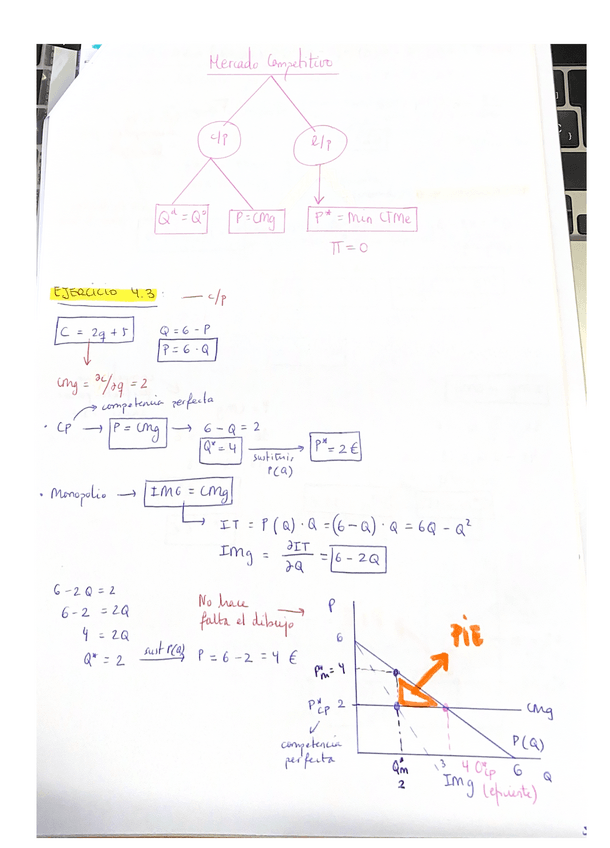 Mercado Competitivo
c/p
l/p
Qᵈ = Qᵒ
P = CMg
P* = min CTMe
Π = 0
EJERCICIO 4.3: — c/p
C = 2q + 5
Q = 6 - P
P = 6 - Q
CMg = ∂C/∂q = 2
competencia perfecta
· CP → P = CMg → 6 - Q = 2
Q* = 4
sustituir P(Q)
P* = 2 €
· Monopolio → IMG = CMg
IT = P(Q) · Q = (6 - Q) · Q = 6Q - Q²
IMg = ∂IT/∂Q = 6 - 2Q
6 - 2Q = 2
6 - 2 = 2Q
4 = 2Q
Q* = 2 sust P(Q) P = 6 - 2 = 4 €
No hace
falta el dibujo
P
6
PIE
P*m = 4
P*cp 2
CMg
competencia
perfecta
P(Q)
Q*m
2
3
4 Q*cp
6
Q
IMg
(eficiente)